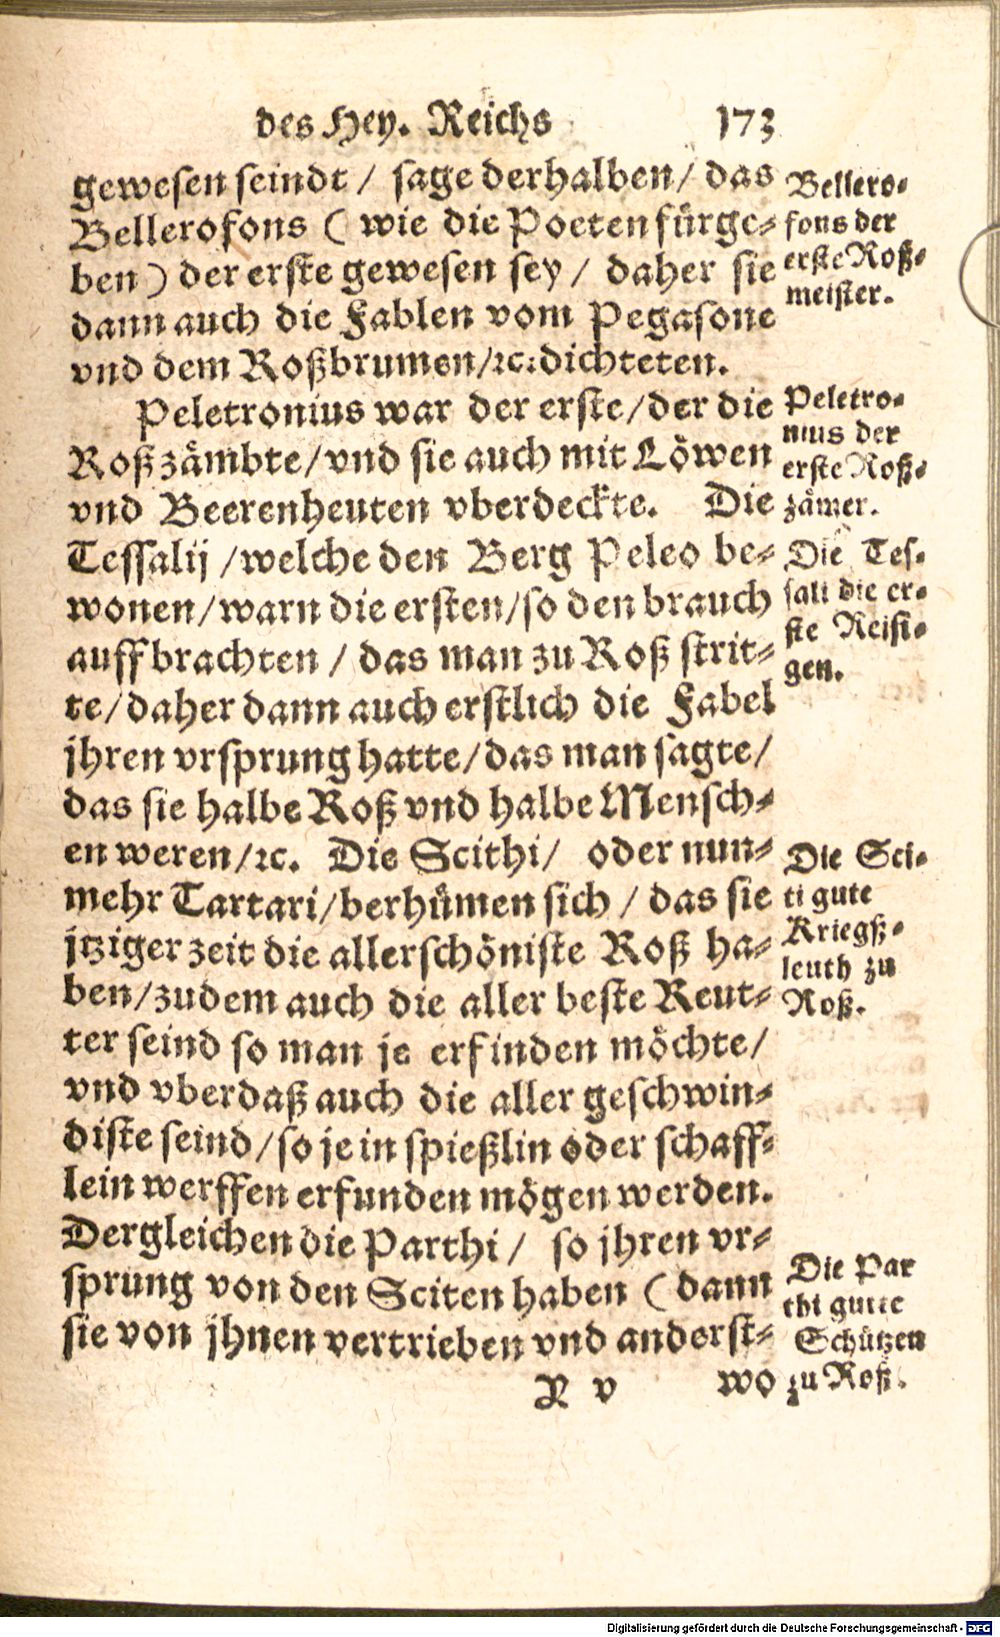 des Hey. Reichs 173
gewesen seindt / sage derhalben / das
Bellerofons ( wie die Poeten fürge-
ben ) der erste gewesen sey / daher sie
dann auch die Fablen vom Pegasone
vnd dem Roßbrumen /ꝛc: dichteten.
Peletronius war der erste / der die
Roß zämbte / vnd sie auch mit Löwen
vnd Beerenheuten vberdeckte. Die
Tessalij / welche den Berg Peleo be-
wonen / warn die ersten / so den brauch
auff brachten / das man zu Roß strit-
te / daher dann auch erstlich die Fabel
jhren vrsprung hatte / das man sagte /
das sie halbe Roß vnd halbe Mensch-
en weren /ꝛc. Die Scithi / oder nun-
mehr Tartari / berhümen sich / das sie
jtziger zeit die allerschöniste Roß ha-
ben / zudem auch die aller beste Reut-
ter seind so man je erfinden möchte /
vnd vberdaß auch die aller geschwin-
diste seind / so je in spießlin oder schaff-
lein werffen erfunden mögen werden.
Dergleichen die Parthi / so jhren vr-
sprung von den Sciten haben ( dann
sie von jhnen vertrieben vnd anderst-
N v wo
Bellero-
fons der
erste Roß-
meister.
Peletro-
nius der
erste Roß-
zämer.
Die Tes-
sali die er-
ste Reisi-
gen.
Die Sci-
ti gute
Kriegß-
leuth zu
Roß.
Die Par
thi gutte
Schützen
zu Roß.
Digitalisierung gefördert durch die Deutsche Forschungsgemeinschaft - DFG